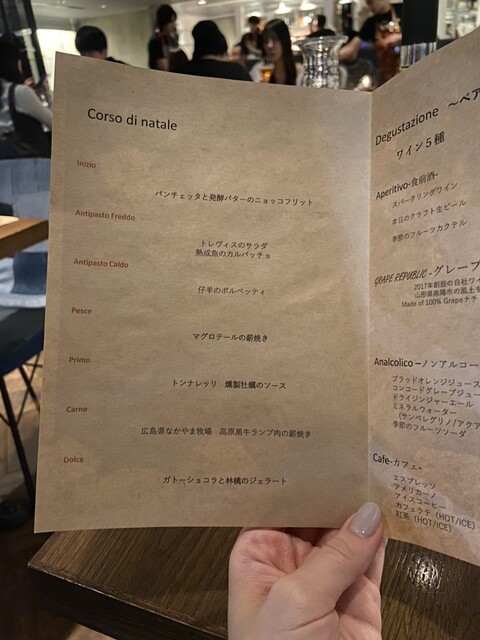 Corso di natale
Inizio
パンチェッタと発酵バターのニョッコフリット
Antipasto Freddo
トレヴィスのサラダ
熟成魚のカルパッチョ
Antipasto Caldo
仔羊のポルペッティ
Pesce
マグロテールの薪焼き
Primo
トンナレッリ 燻製牡蠣のソース
Carne
広島県なかやま牧場 高原黒牛ランプ肉の薪焼き
Dolce
ガトーショコラと林檎のジェラート
Degustazione ～ペア
ワイン5種
Aperitivo-食前酒-
スパークリングワイン
本日のクラフト生ビール
季節のフルーツカクテル
GRAPE REPUBLIC -グレープ
2017年創設の自社ワイ
山形県南陽市の風土を
Made of 100% Grapeナチ
Analcolico－ノンアルコー
ブラッドオレンジジュース
コンコードグレープジュー
ドライジンジャーエール
ミネラルウォーター
(サンペレグリノ/アクア
季節のフルーツソーダ
Cafe-カフェ-
エスプレッソ
アメリカーノ
アイスコーヒー
カフェラテ (HOT/ICE)
紅茶 (HOT/ICE)